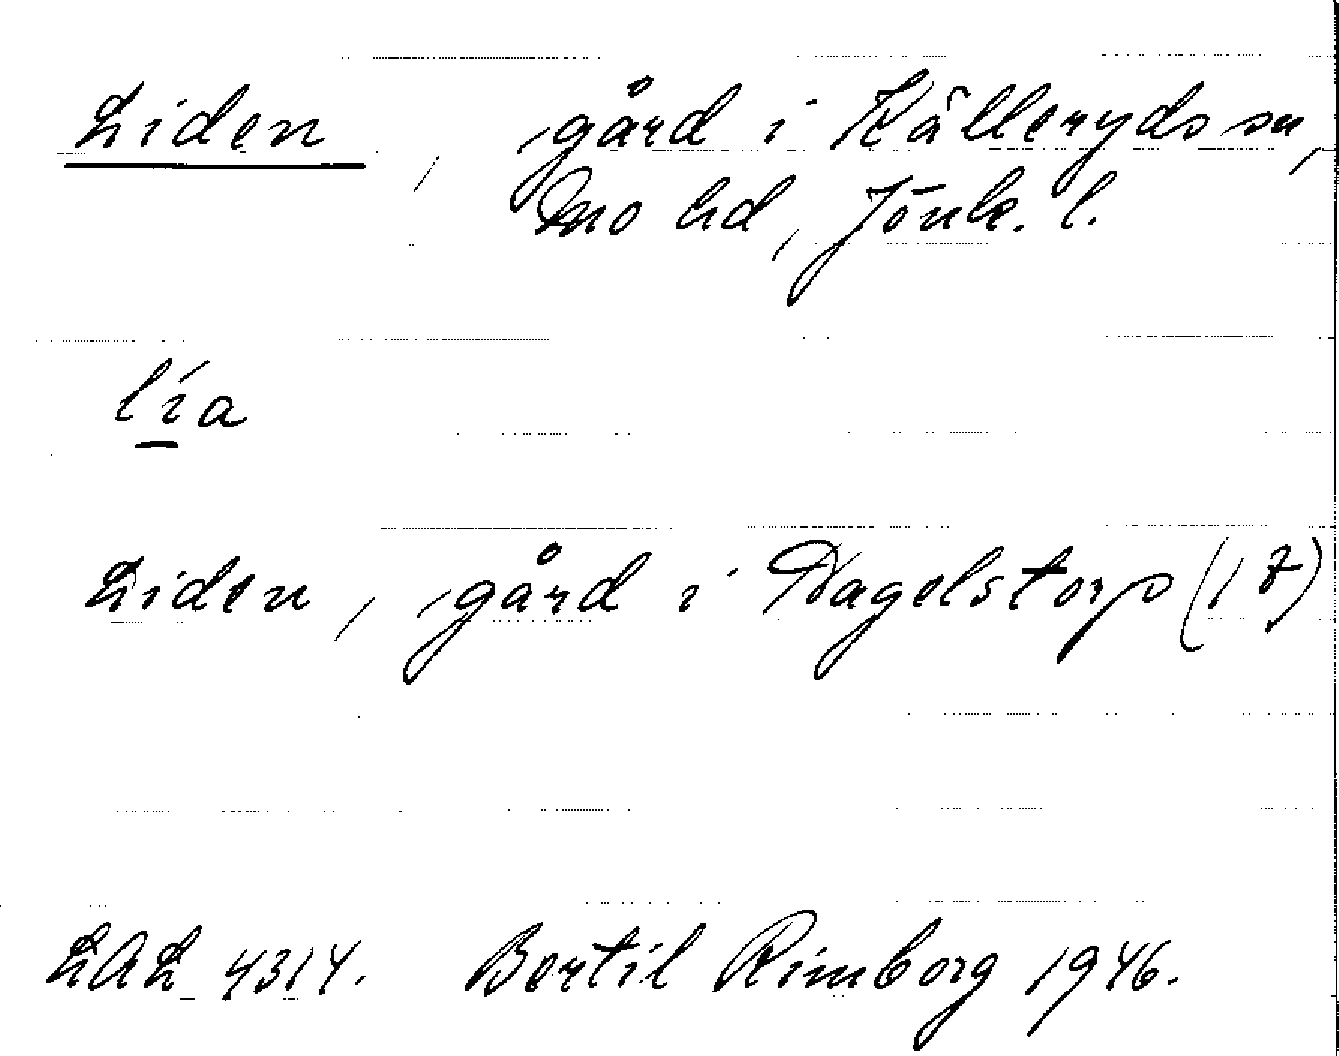 Liden, gård i Källeryds sn,
Mo hd, Jönk. l.
lía
Liden, gård i Nagelstorp (17)
LAL 4314. Bertil Rimborg 1946.